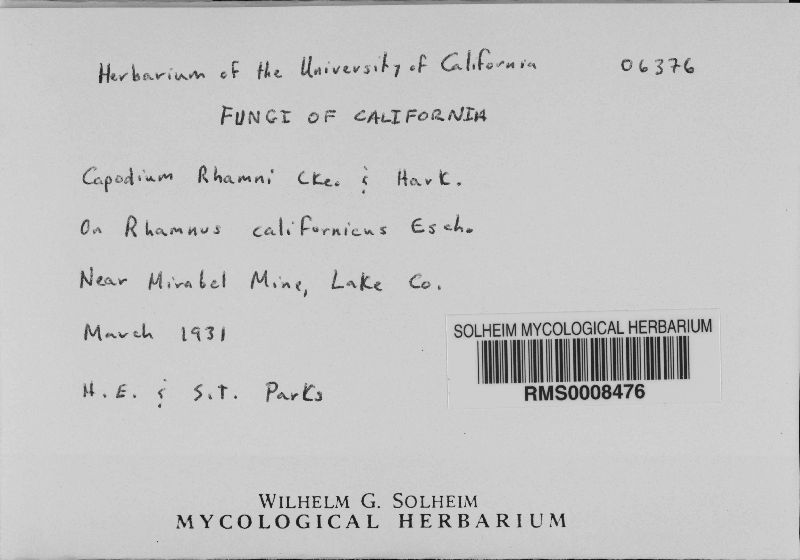 Herbarium of the University of California 06376
FUNGI OF CALIFORNIA
Capodium Rhamni Cke. & Hark.
On Rhamnus californicus Esch.
Near Mirabel Mine, Lake Co.
March 1931
H. E. & S.T. Parks
SOLHEIM MYCOLOGICAL HERBARIUM
RMS0008476
WILHELM G. SOLHEIM
MYCOLOGICAL HERBARIUM